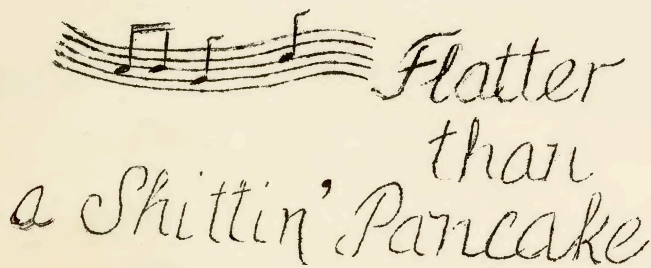 Flatter
than
a Shittin' Pancake